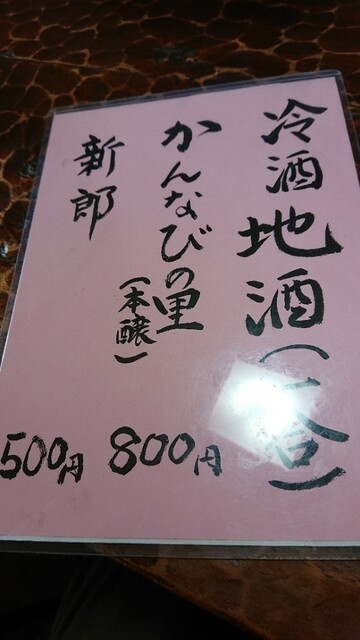 冷酒地酒(一合)
かんなびの里
(本醸)
800円
新郎
500円